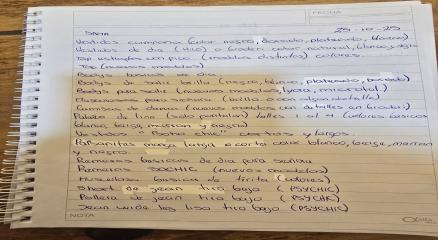 FECHA
28-10-25
SANTA
Vestidos campana (color negro, dorado, plateado, blanco)
Vestidos de dia (Hilo) o Broderi color natural, blanco, negro
Top con pico (modelos distintos) colores.
Top (nuevos modelos)
Bodys basicos de dia
Bodys de salir brillo (negro, blanco, plateado, dorado)
Bodys para salir (nuevos modelos, lycra, microtul)
Musculosas para señora (brillo o con algun detalle)
Camisas de dama (nuevos modelos con detalles en broderi)
Palazo de lino (solo pantalon) talles 1 al 4 (colores basicos
blanco, beige, marron y negro)
Vestidos cortos y largos.
manga larga o corta color blanco, beige, marron
y negro
Remeras basicas de dia para señora
Remeras (nuevos modelos)
Musculosa basica de tirita (colores)
Short de jean tiro bajo (PSYCHIC)
Pollera de jean tiro bajo (PSYCHIC)
Jean wide leg liso tiro bajo (PSYCHIC)
NOTA